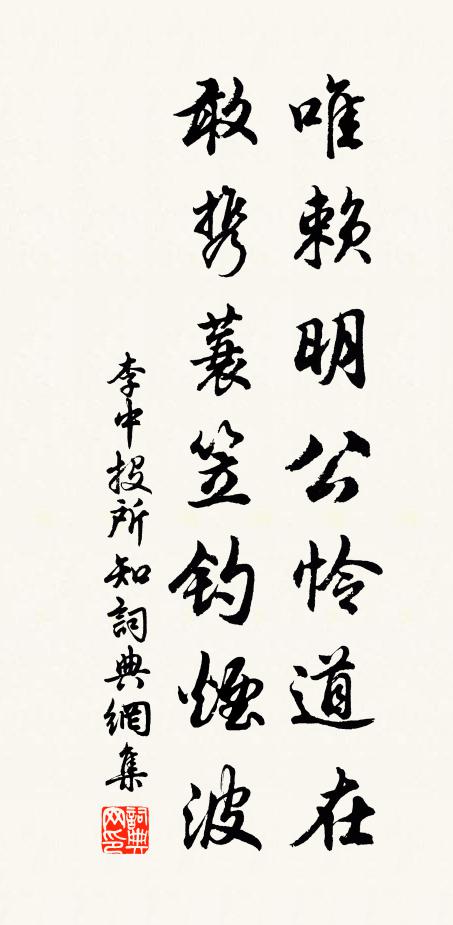 唯赖明公怜道在
敢携蓑笠钓烟波
李中投所知詞典網集
詞典网印